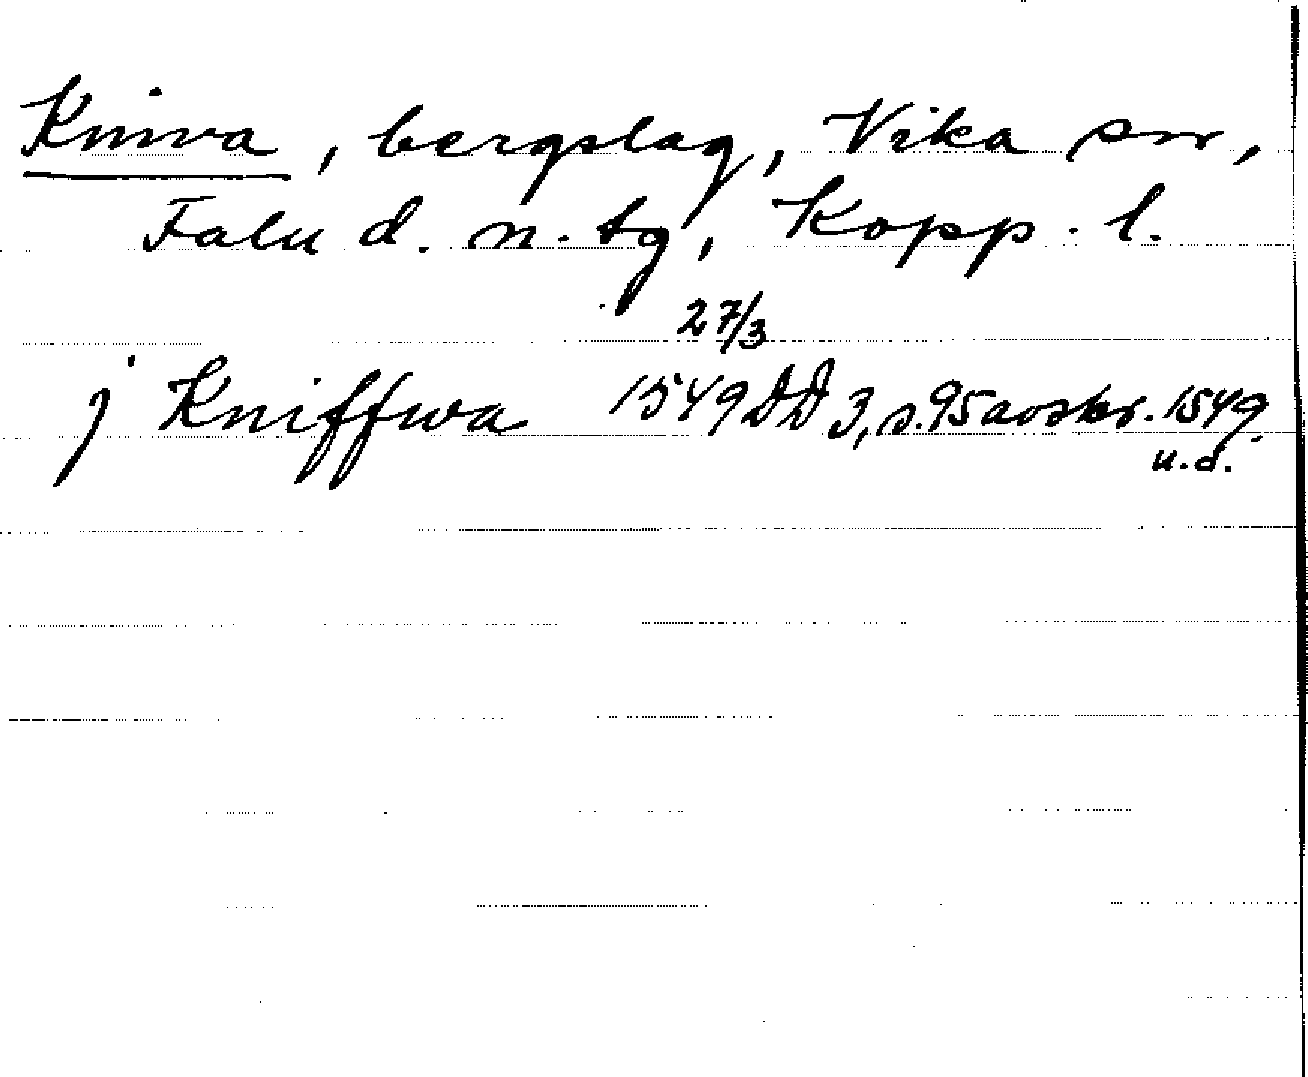 Kniva, bergslag, Vika sn,
Falu d. n. tg, Kopp. l.
27/3
j Kniffwa 1549 DD 3, s. 95 avskr. 1549
u.d.